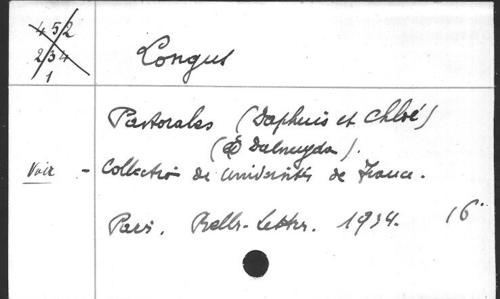 452
234
1
Longus
Pastorales (Daphnis et Chloé)
(G Dalmeyda).
Voir - Collection des Universités de France.
Paris. Belles-Lettres. 1934. 16°